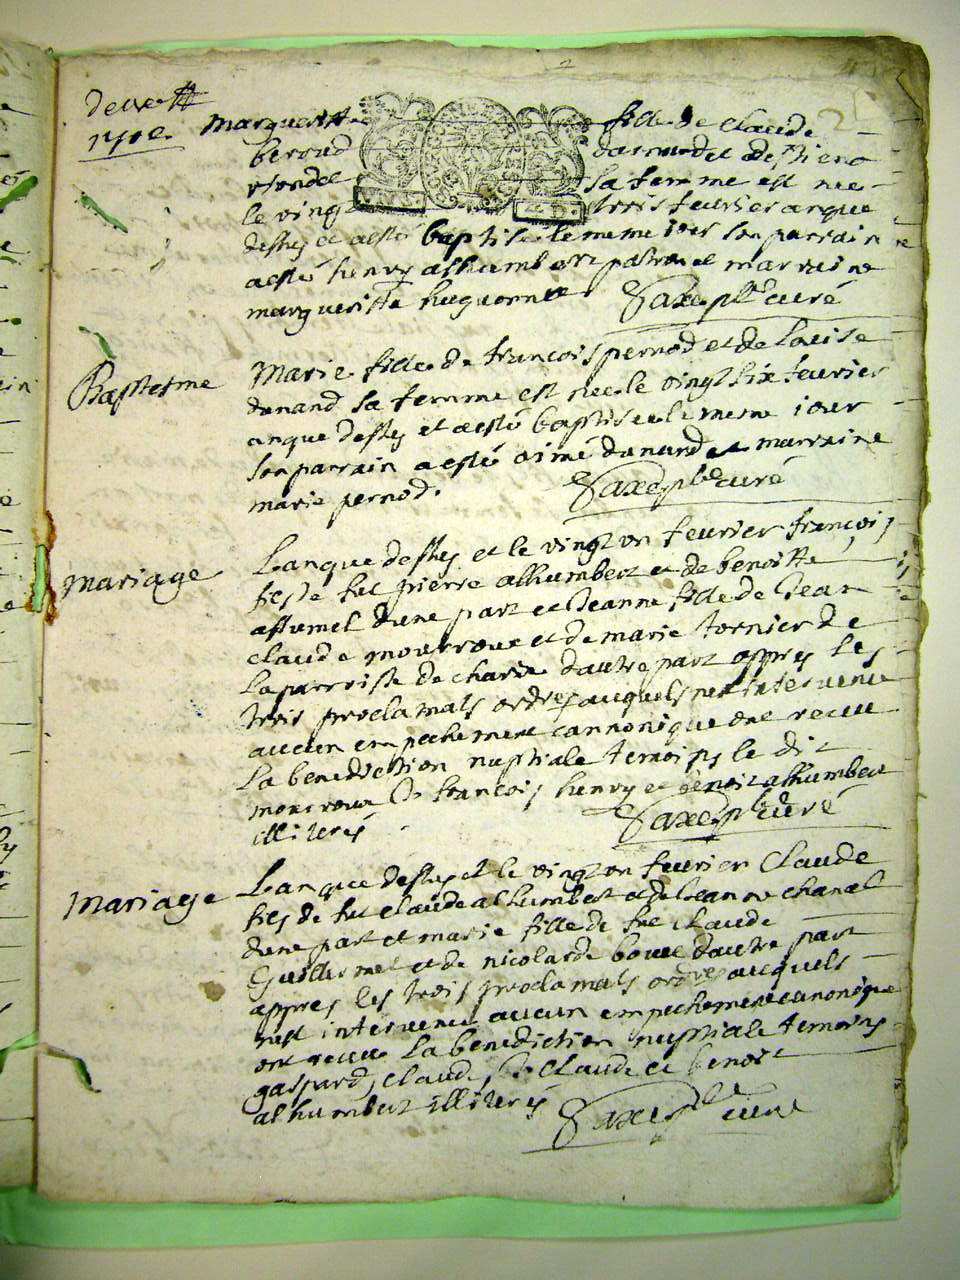 2
1712. Margueritte fille de Claude
beroud
la femme est nee
le vingt trois feurier anque
desus et a esté baptisé le meme iour son parrain
a esté henry alhumbert et marraine
margueritte huguonne Saxe pbr curé
Baptesme
Marie fille de francois pernod et de Louise
dunand sa femme est nee le vingt six feurier
anque desus et a esté baptisee le mesme iour
son parrain a esté aimé dunand et marraine
marie pernod. Saxe pbr curé
Mariage
Lanque desus et le vingt un feurier françois
fils de fut pierre alhumbert et de benoitte
dune part et Jeanne fille de Jean
claude et de marie tornier de
la parroisse de dautre part appres les
trois proclamats ordres auquels nest interuenue
aucun empechement cannonique ont recue
la benediction nuptiale temoins le dit
francois henry et benoit alhumbert
illiterés Saxe pbr curé
Mariage
Lanque desus et le vingt un feurier Claude
fils de fut claude alhumbert et de Jeanne chanel
dune part et marie fille de fut claude
Guillermet et de nicolarde dautre part
appres les trois proclamats ordres aucquels
nest interuenue aucun empechement canonique
ont recue la benediction nuptiale temoins
gaspard, claude, Claude et benoit
alhumbert illiterés Saxe pbr curé